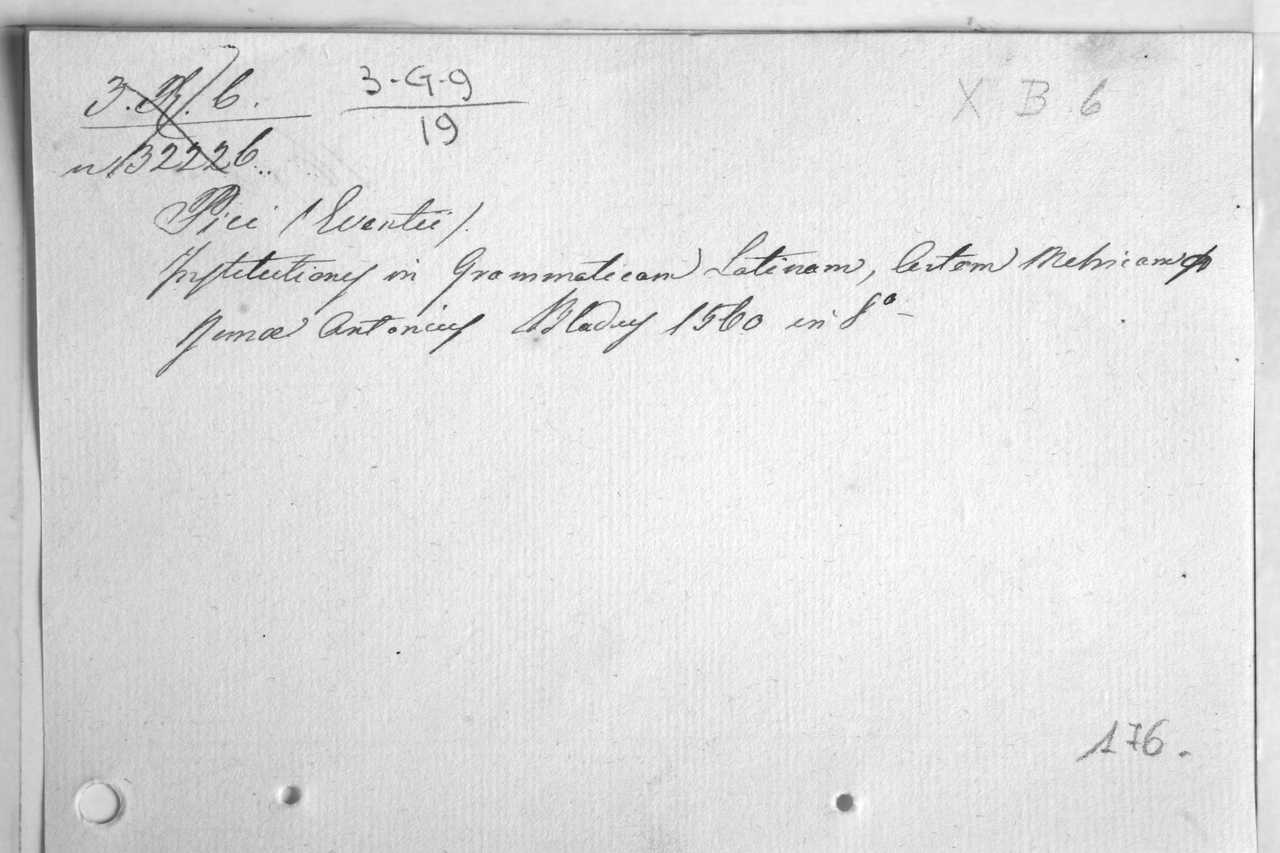 3. R. 6.
3-G-9
19
X B 6
n 132226..
Pici (Evantii).
Institutiones in Grammaticam Latinam, Artem Metricam
Romae Antonius Bladus 1560 in 8°
176.